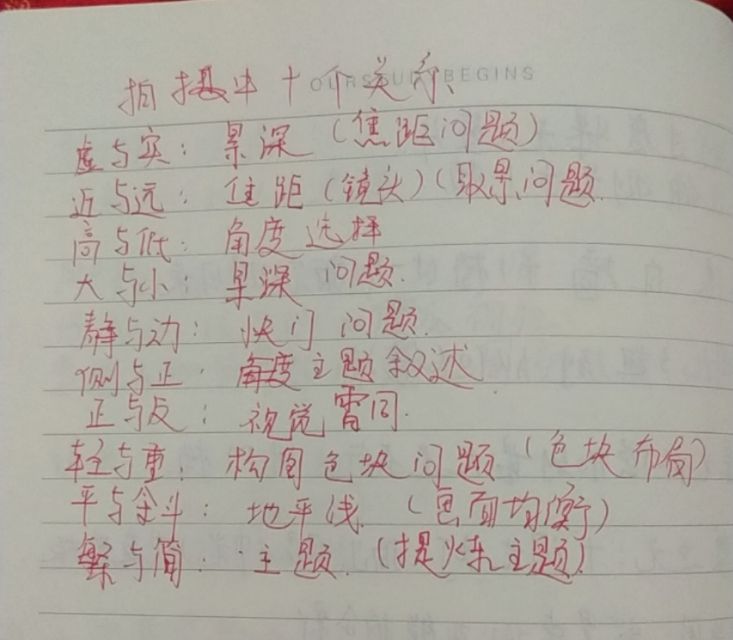 拍摄中十个关系
OURS BEGINS
虚与实：景深（焦距问题）
近与远：住距（镜头）（取景问题
高与低：角度选择
大与小：景深问题.
静与动：快门问题.
侧与正：角度主题叙述
正与反：视觉雷同.
轻与重：构图色块问题（色块布局）
平与斜：地平线.（画面均衡）
繁与简：主题.（提炼主题）